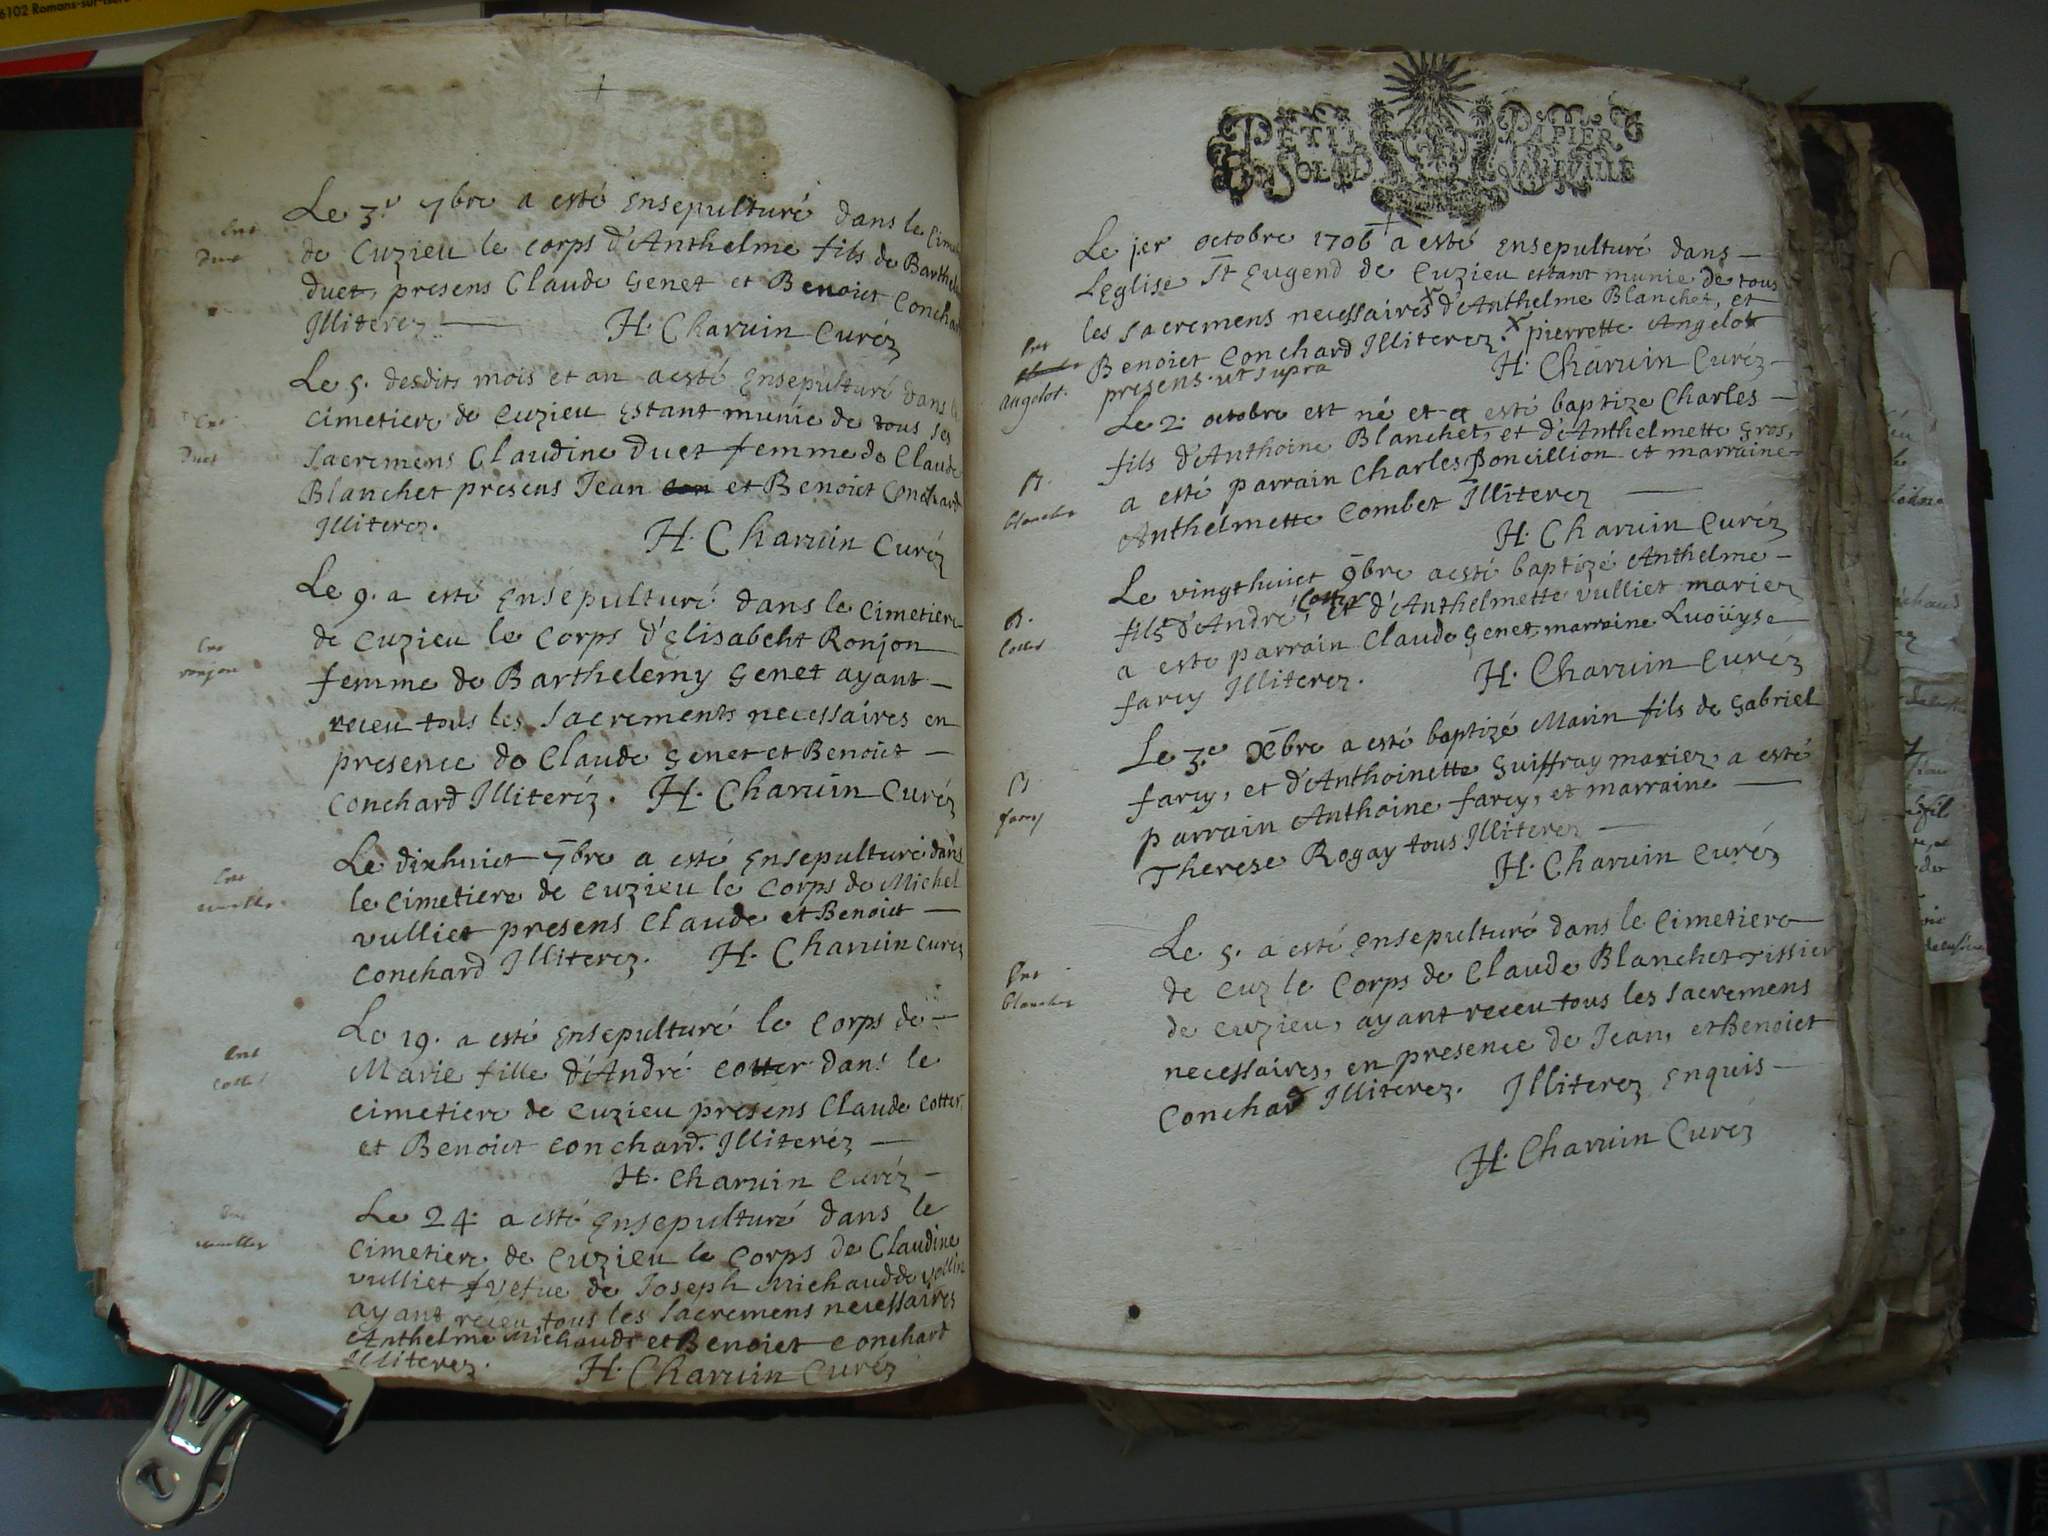 6102 Romans-sur-Isère
Le 3.e 7bre a esté ensepulturé dans le Cime
de Cuzieu le corps d'Anthelme fils de Barthele
duet, presens Claude Genet et Benoict Conchar
Illiterez. H. Charuin Curéz
Duet
Le 5. desdits mois et an a esté ensepulturé dans le
Cimetiere de Cuzieu estant munie de tous ses
sacremens Claudine Duet femme de Claude
Blanchet presens Jean et Benoict Conchard
Illiterez.
H. Charuin Curéz
Duet
Le 9. a esté ensepulturé dans le Cimetiere
de Cuzieu le Corps d'Elisabeht Ronjon
femme de Barthelemy Genet ayant
receu tous les sacrements necessaires en
presence de Claude Genet et Benoict
Conchard Illiteréz. H. Charuin Curéz
ronjon
Le dixhuict 7bre a esté ensepulturé dans
le Cimetiere de Cuzieu le Corps de Michel
vulliet presens Claude et Benoict
Conchard Illiterez. H. Charuin Curéz
Le 19. a esté ensepulturé le Corps de
Marie fille d'André cotter dans le
cimetiere de Cuzieu presens Claude cotter
et Benoict Conchard. Illiteréz
H. Charuin Curéz
Le 24. a esté ensepulturé dans le
Cimetiere de Cuzieu le Corps de Claudine
vulliet vefue de Joseph Michaud de
ayant receu tous les sacremens necessaires
Anthelme Michaude et Benoict Conchard
Illiterez.
H. Charuin Curéz
PETIT PAPIER
Le jer octobre 1706 a esté ensepulturé dans
Leglise St Eugend de Cuzieu estant munie de tous
les sacremens necessaires x d'Anthelme Blanchet, et
Benoict Conchard Illiterez. x pierrette Angelot
presens ut supra
H. Charuin Curéz
angelot.
Le 2. octobre est né et a esté baptize Charles
fils d'Anthoine Blanchet, et d'Anthelmette Gros,
a esté parrain Charles Poncillion et marraine
Anthelmette Combet Illiterez
H. Charuin Curéz
B.
blanchet
Le vingthuict 9bre a esté baptizé Anthelme
fils d'André, cotter et d'Anthelmette vulliet mariez
a esté parrain Claude Genet, marraine Luoüyse
farcy Illiterez.
H. Charuin Curéz
B.
Cotter
Le 3.e Xbre a esté baptizé Marin fils de Gabriel
farcy, et d'Anthoinette Guiffray mariez a esté
parrain Anthoine farcy, et marraine
Therese Rogay tous Illiterez
H. Charuin Curéz
B
farcy
Le 5. a esté ensepulturé dans le Cimetiere
de Cuz le Corps de Claude Blanchet Tissier
de Cuzieu, ayant receu tous les sacremens
necessaires, en presence de Jean, et Benoict
Conchard Illiterez. Illiterez enquis
H. Charuin Curéz
blanchet